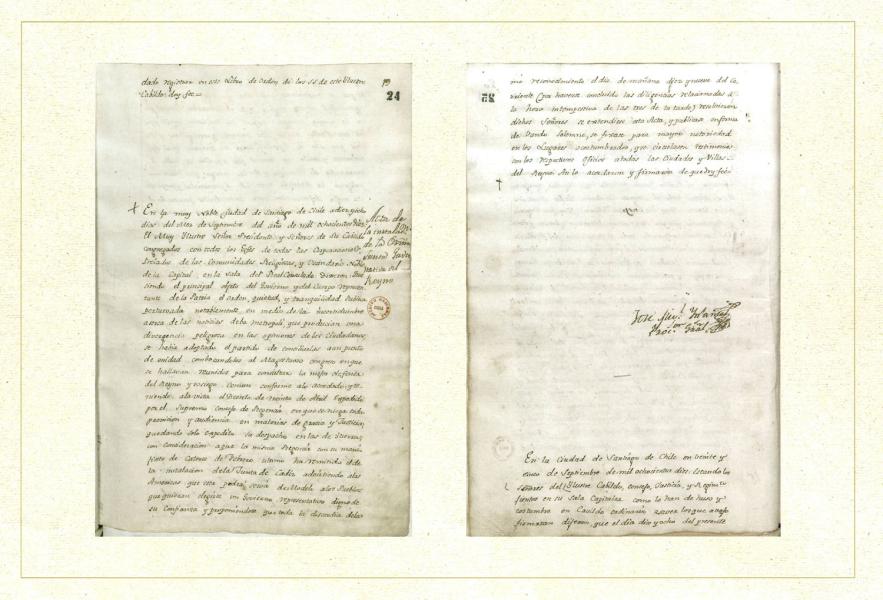 dado registrar en este Libro de Orden de los SS de este Ilustre
Cabildo: doy fee =
24
En la muy Noble Ciudad de Santiago de Chile a diez y ocho
dias del Mes de Septiembre del año de mil ochocientos diez
El Muy Ilustre Señor Presidente y Señores de Su Cabildo
congregados con todos los Gefes de todas las Corporaciones,
Prelados de las Comunidades Religiosas, y Vecindario Noble
de la Capital, en la Sala del Real Consulado. Dixeron: Que
siendo el principal objeto del Govierno y del Cuerpo Represen
tante de la Patria el orden, quietud, y tranquilidad Publica
perturvada notablemente en medio de la incertidumbre
acerca de las noticias dela Metropoli, que producian una
divergencia peligrosa en las opiniones de los Ciudadanos;
se havia adoptado el partido de conciliarlas a un punto
de unidad, combocandolos al Magestuoso congreso en que
se hallavan reunidos para consultar la mejor defensa
del Reyno y sosiego comun conforme alo acordado: y te-
niendo ala vista el Decreto de treinta de Abril expedido
por el Supremo Consejo de Regencia en que se niega toda
provicion y audiencia en materias de gracia y Justicia
quedando solo expedito su despacho en las de Guerra;
con consideracion a que la misma Regencia con su mani
fiesto de Catorce de Febrero ultimo ha remitido el de
la instalacion dela Junta de Cadiz advirtiendo alas
Americas que esta podra servir de Modelo alos Pueblos
que quieran elegirse un Govierno representativo digno de
su Confianza y proponiendose que toda la discordia dela
Acta de
la instalacion
de la Exma
Junta Guber
nativa del
Reyno
mo reconocimiento el dia de mañana diez y nueve del co
rriente (por haverse concluido las diligencias relacionadas a
la hora intempestiva de las tres de la tarde) resolvieron
dichos Señores se extendiese esta Acta, y publicase en forma
de Vando Solemne, se fixase para mayor notoriedad
en los Lugares acostumbrados, y se circulasen testimonios
con los respectivos Oficios a todas las Ciudades y Villas
del Reyno. Asi lo acordaron y firmaron de que doy fee =
José Mig.l Infante
Proc.or Gral
En la Ciudad de Santiago de Chile en veinte y
cinco de Septiembre de mil ochocientos diez: estando los
Señores del Ylustre Cabildo, Consejo, Justicia, y Regimi
juntos en su Sala Capitular como lo han de huso y
costumbre en Cavildo ordinario
firmaran dijeron, que el dia dies y ocho del presente